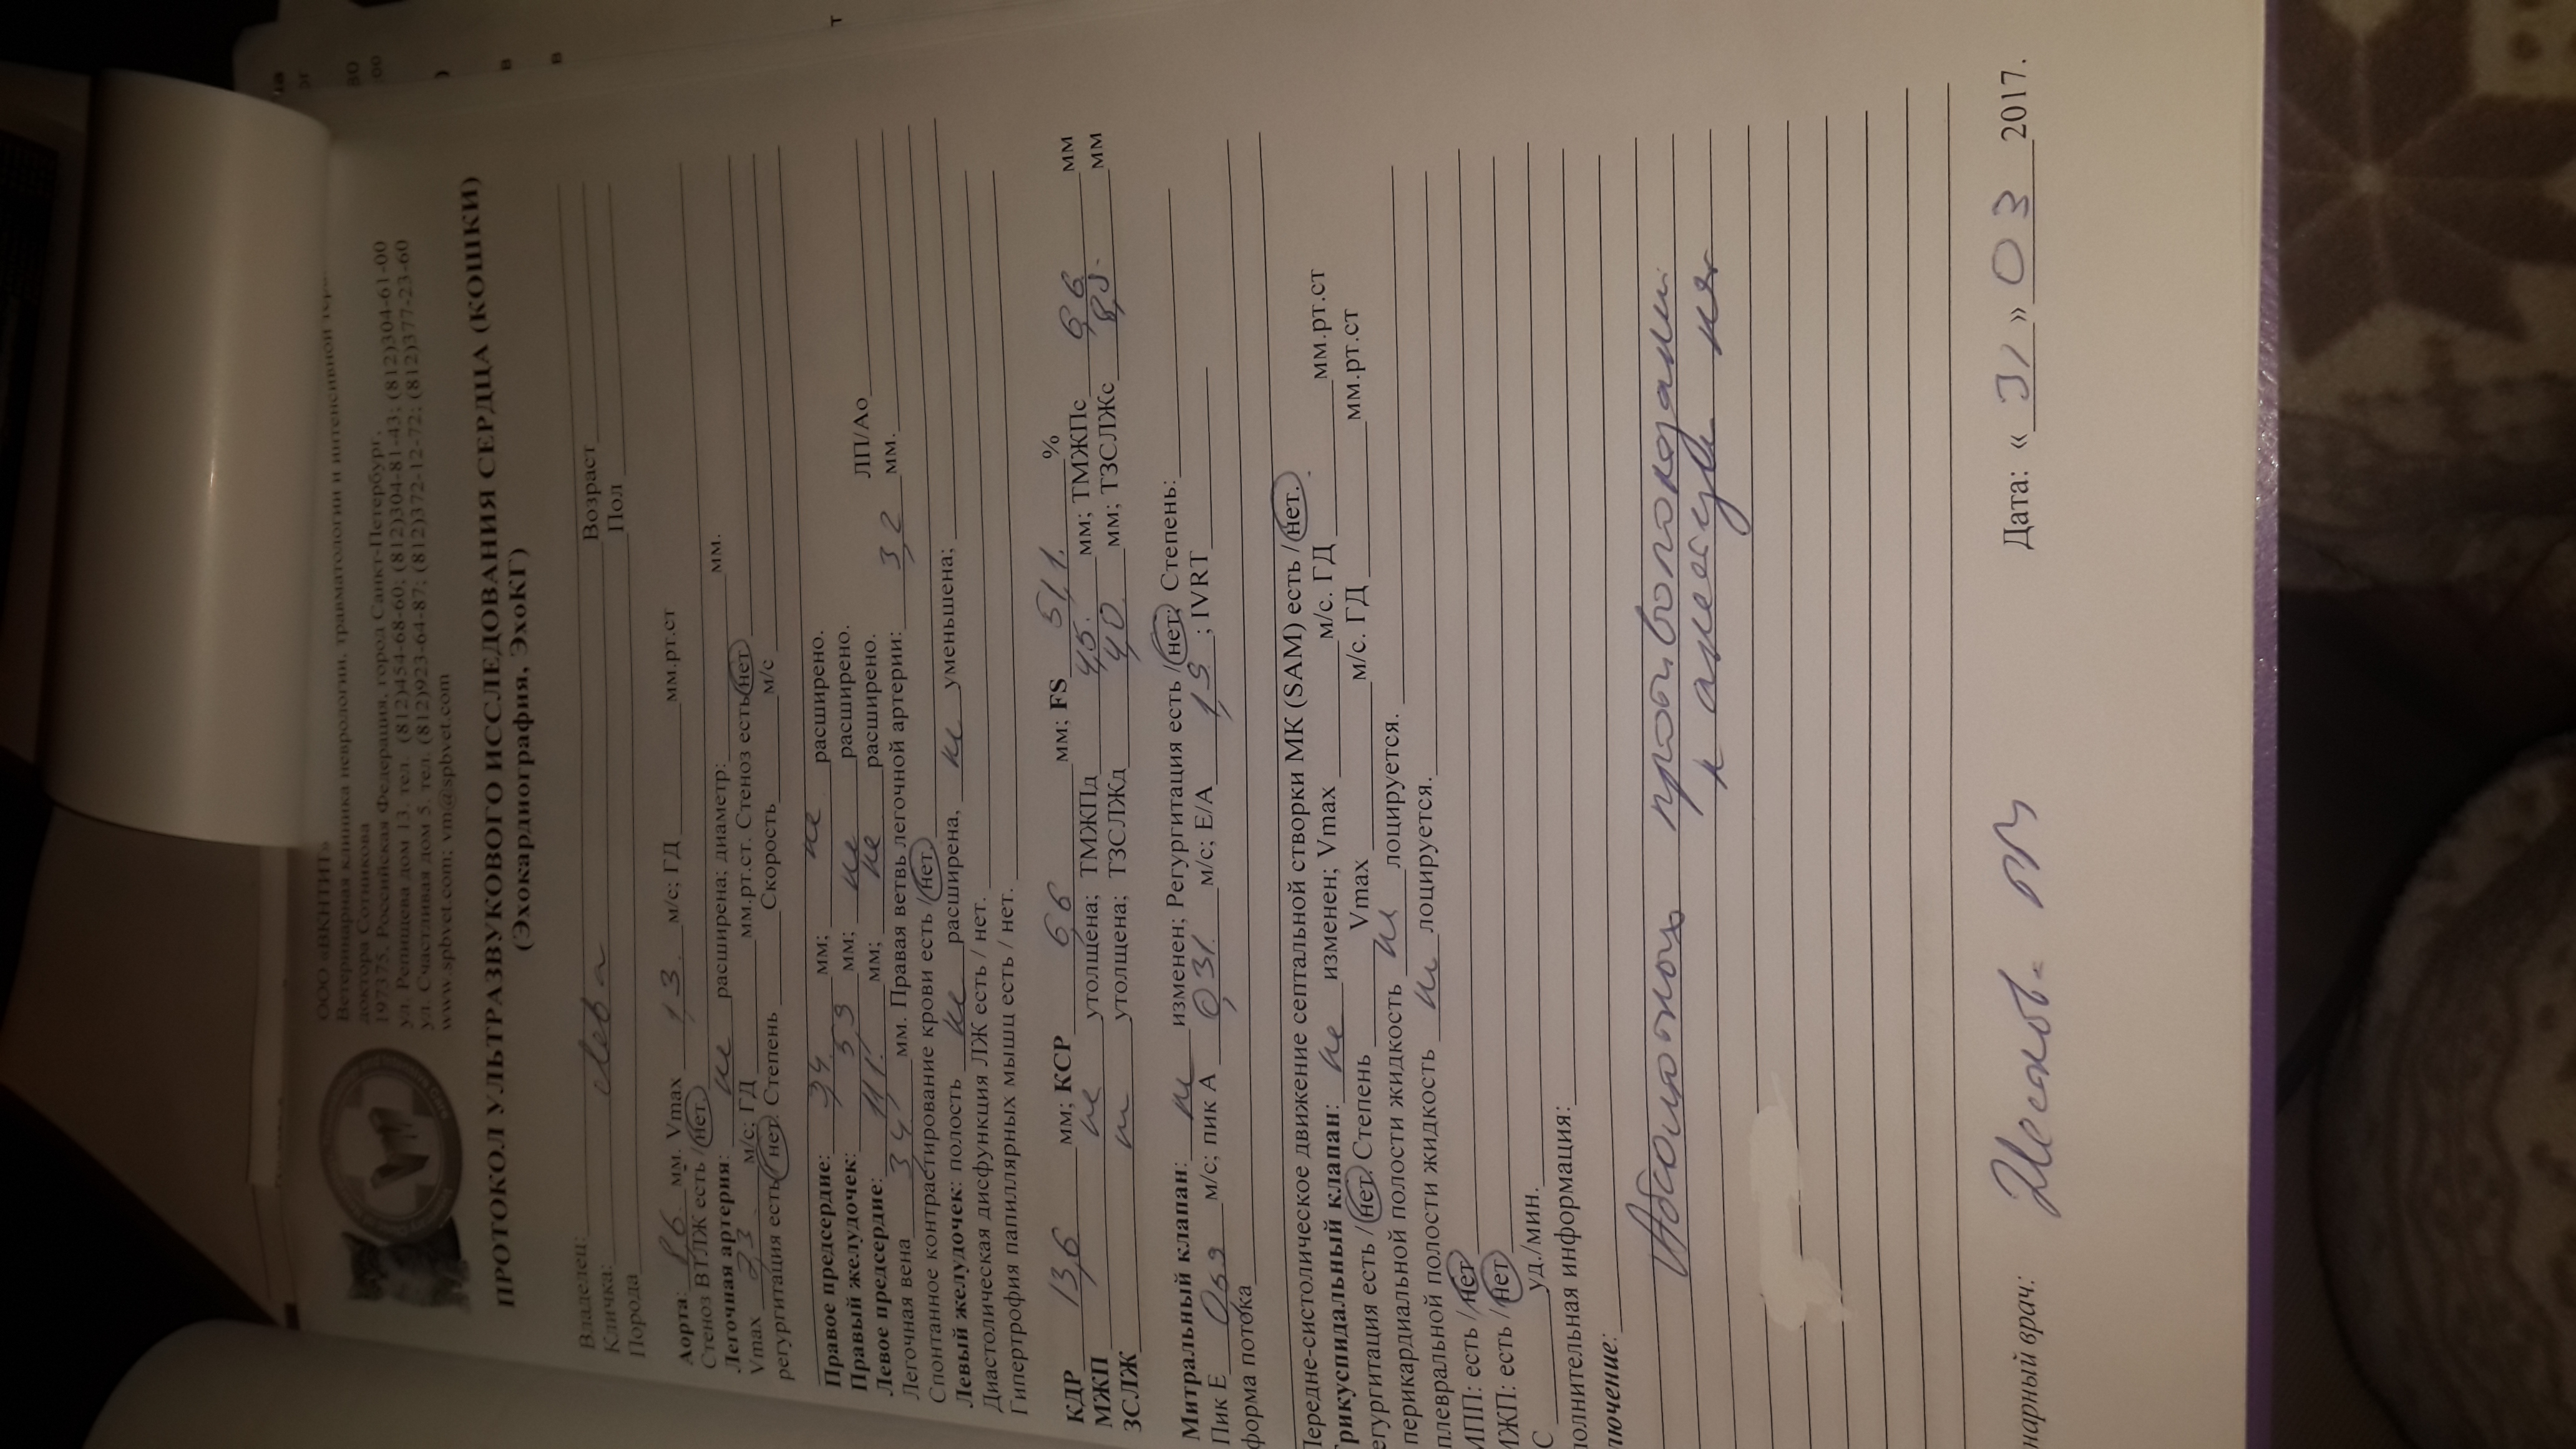 ООО «ВКНТИТ»
Ветеринарная клиника неврологии, травматологии и интенсивной
доктора Сотникова
197375, Российская Федерация, город Санкт-Петербург,
ул. Репищева дом 13. тел. (812)454-68-60; (812)304-81-43; (812)304-61-00
ул. Счастливая дом 5. тел. (812)923-64-87; (812)372-12-72; (812)377-23-60
www.spbvet.com; vm@spbvet.com
ПРОТОКОЛ УЛЬТРАЗВУКОВОГО ИССЛЕДОВАНИЯ СЕРДЦА (КОШКИ)
(Эхокардиография, ЭхоКГ)
Владелец:
Кличка: Лева Возраст
Порода Пол
Аорта: мм. Vmax 1,3 м/с; ГД мм.рт.ст
Стеноз ВТЛЖ есть / нет.
Легочная артерия: не расширена; диаметр: мм.
Vmax м/с; ГД мм.рт.ст. Стеноз есть нет
регургитация есть / нет. Степень Скорость м/с
Правое предсердие: мм; не расширено.
Правый желудочек: мм; не расширено.
Левое предсердие: мм; не расширено. ЛП/Ао
Легочная вена мм. Правая ветвь легочной артерии: 3,2 мм.
Спонтанное контрастирование крови есть / нет.
Левый желудочек: полость не расширена, не уменьшена;
Диастолическая дисфункция ЛЖ есть / нет.
Гипертрофия папиллярных мышц есть / нет.
КДР 13,6 мм; КСР 6,6 мм; FS 51,1 %
МЖП не утолщена; ТМЖПд 4,5 мм; ТМЖПс 6,6 мм
ЗСЛЖ не утолщена; ТЗСЛЖд 4,0 мм; ТЗСЛЖс мм
Митральный клапан: не изменен; Регургитация есть / нет. Степень:
Пик Е м/с; пик А м/с; Е/А 1,9 ; IVRT
форма потока
Передне-систолическое движение септальной створки МК (SAM) есть / нет.
Трикуспидальный клапан: не изменен; Vmax м/с. ГД мм.рт.ст
егургитация есть / нет. Степень Vmax м/с. ГД мм.рт.ст
перикардиальной полости жидкость не лоцируется.
плевральной полости жидкость не лоцируется.
МПП: есть / нет
МЖП: есть / нет
С уд./мин.
полнительная информация:
лючение:
Абсолютных противопоказаний
к анестезии нет
нарный врач: Дата: « 31 » 03 2017.